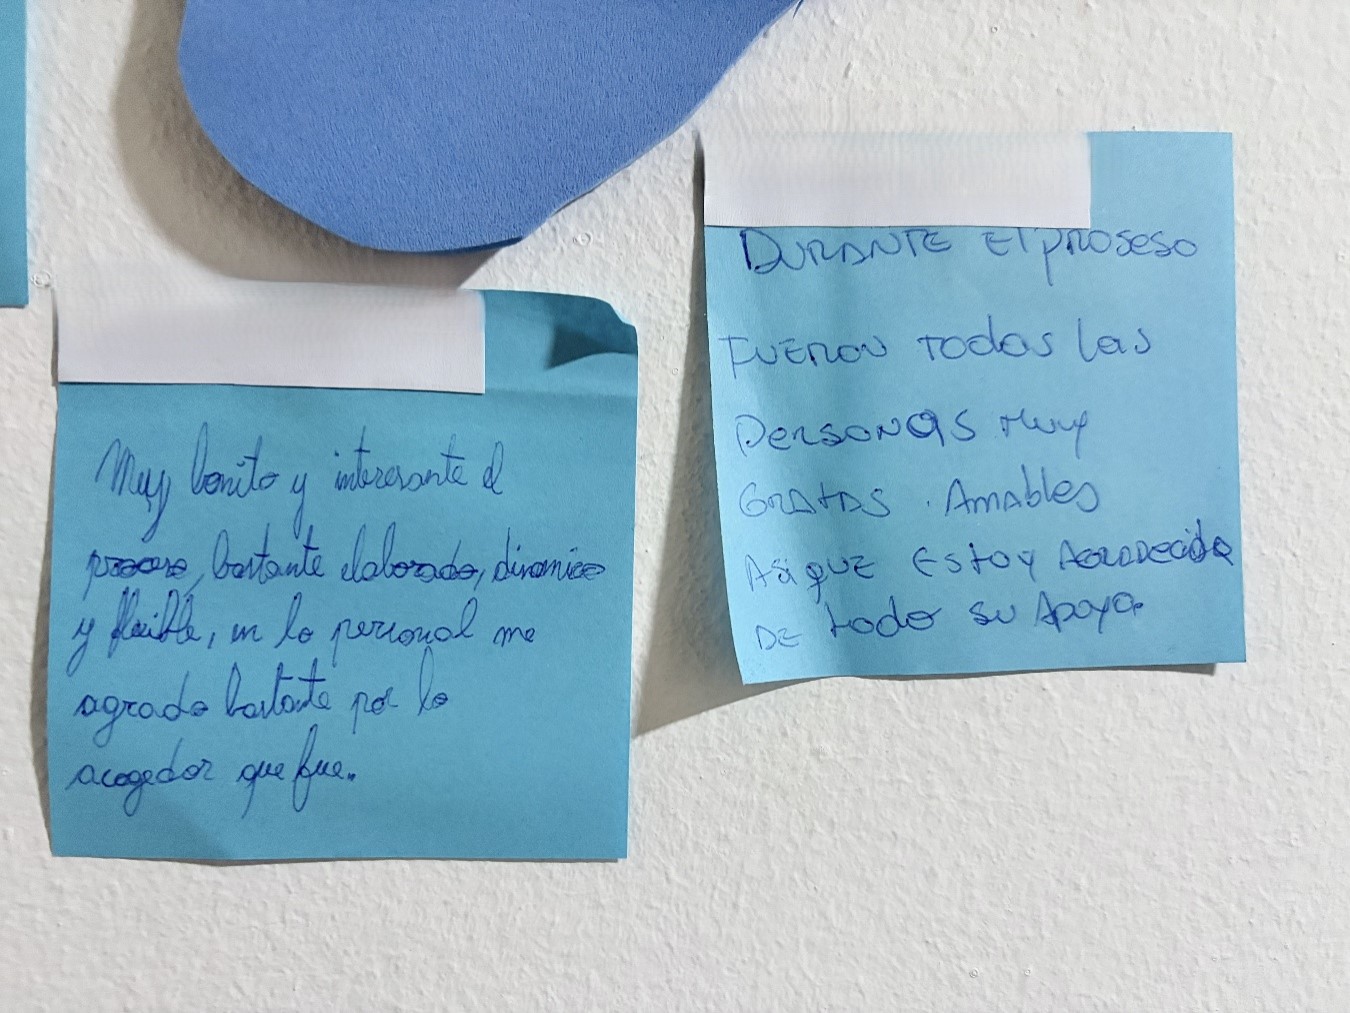 Muy bonito y interesante el
proceso, bastante elaborado, dinamico
y flexible, en lo personal me
agrado bastante por lo
acogedor que fue.
DURANTE El proseso
FUERON Todas las
Personas Muy
GRATAS . Amables
Asi que Estoy Agradecida
DE todo su Apoyo.